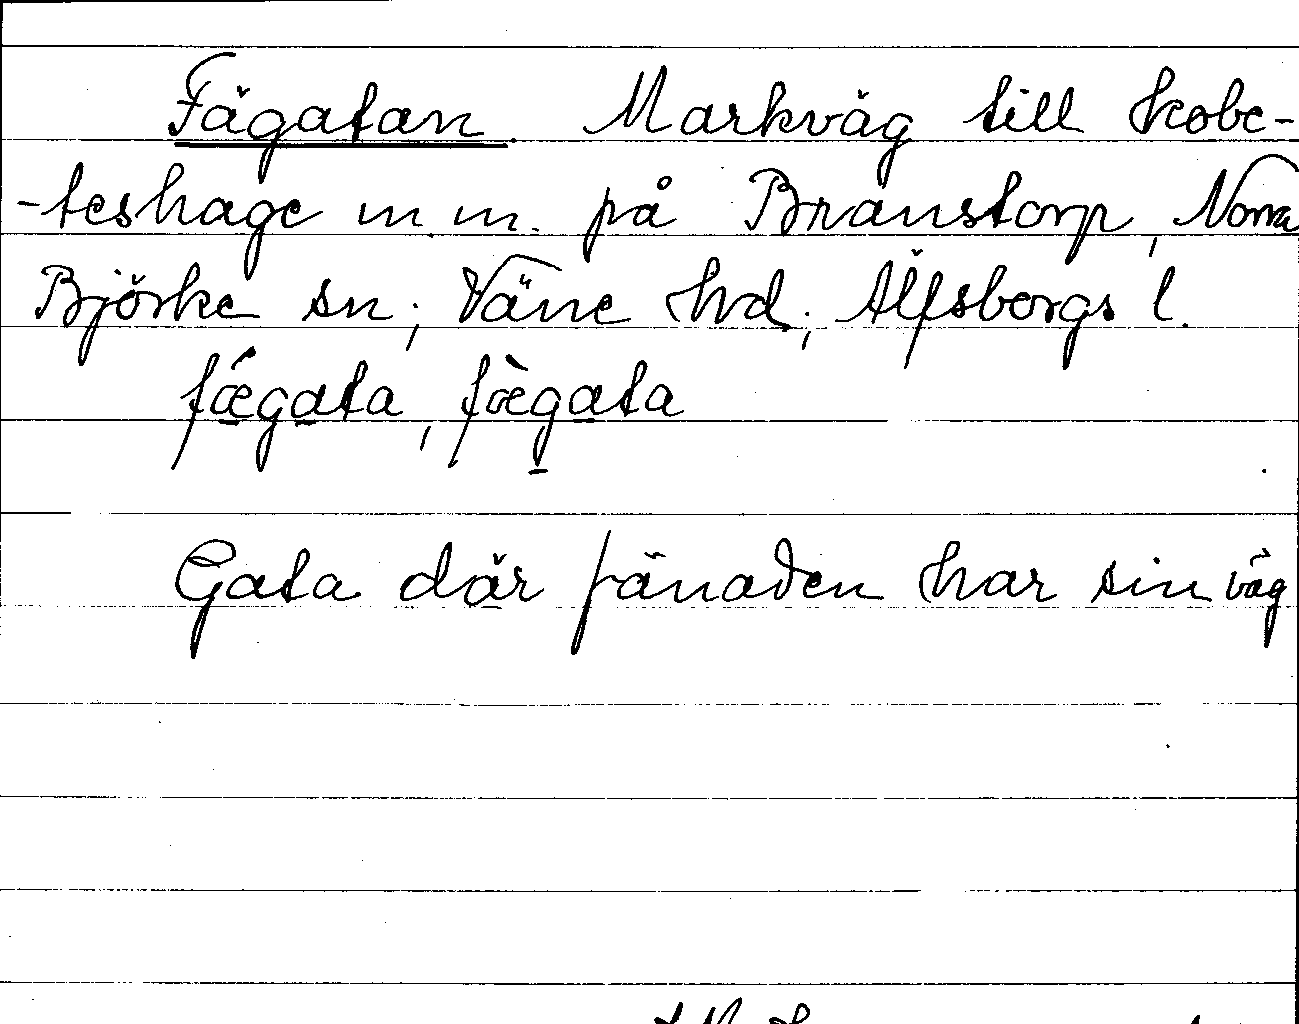 Fägatan. Markväg till kobe-
-teshage m.m. på Branstorp, Norra
Björke sn; Väne hd; Älfsborgs l.
fǽgata, fægata
Gata där fänaden har sin väg